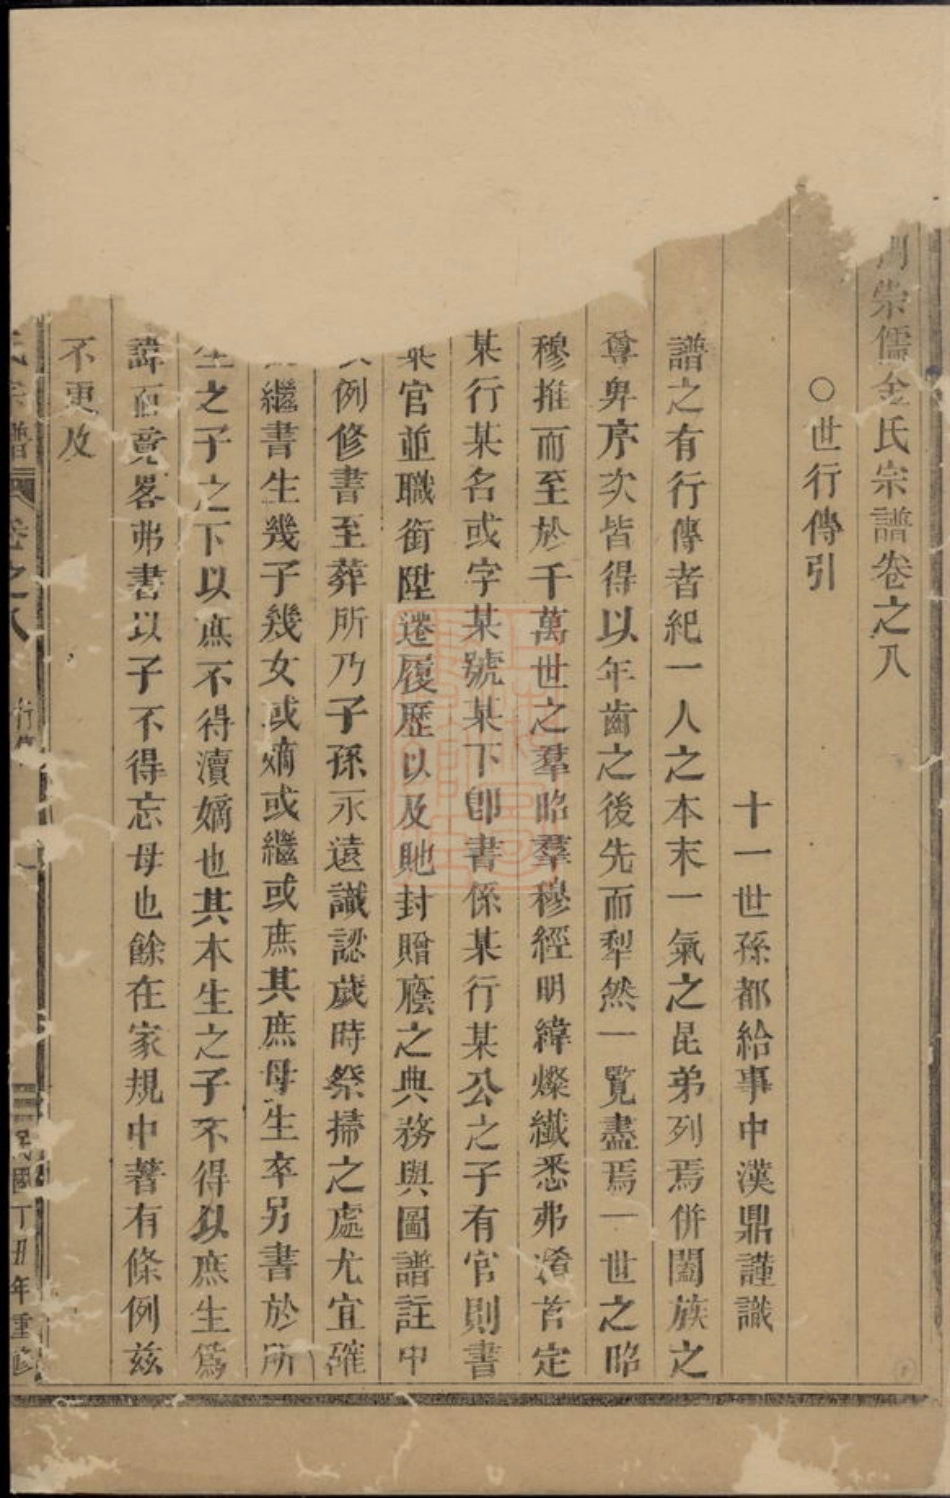 崇儒金氏宗譜卷之八
○世行傳引
十一世孫都給事中漢鼎謹識
譜之有行傳者紀一人之本末一氣之昆弟列焉併闔族之
尊卑序次皆得以年齒之後先而犁然一覽盡焉一世之昭
穆推而至於千萬世之羣昭羣穆經明緯燦纖悉弗淆首定
某行某名或字某號某下卽書係某行某公之子有官則書
某官並職銜陞遷履歷以及貤封贈廕之典務與圖譜註中
例修書至葬所乃子孫永遠識認歲時祭掃之處尤宜確
繼書生幾子幾女或嫡或繼或庶其庶母生卒另書於所
生之子之下以庶不得瀆嫡也其本生之子不得以庶生爲
諱而竟畧弗書以子不得忘母也餘在家規中著有條例兹
不更及
氏宗譜 卷之八 行傳 一 民國丁丑年重修